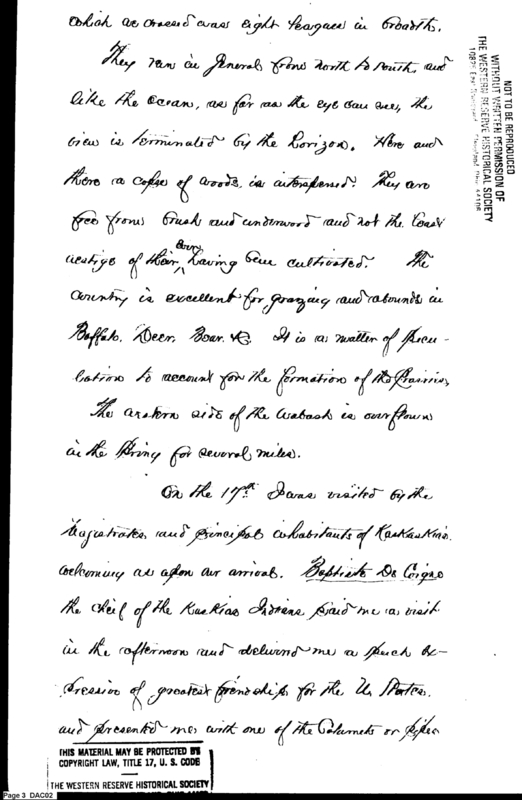 which we crossed was eight leagues in breadth.
They ran in general from north to south, and
like the ocean, as far as the eye can see, the
view is terminated by the horizon. Here and
there a copse of woods is interspersed. They are
free from brush and underwood and not the least
vestige of their ever having been cultivated. The
country is excellent for grazing and abounds in
Buffalo, Deer, Bear &c. It is a matter of specu-
lation to account for the formation of the Prairies,
The western side of the Wabash is overflown
in the Spring for several miles.
On the 17th I was visited by the
Magistrates and principal inhabitants of Kaskaskia
welcoming us upon our arrival. Baptiste De Coigne
the chief of the Kaskias Indians paid me a visit
in the afternoon and delivered me a speech ex-
pressive of greatest friendship for the U. States
and presented me with one of the Calumets or pipes
NOT TO BE REPRODUCED
WITHOUT WRITTEN PERMISSION OF
THE WESTERN RESERVE HISTORICAL SOCIETY
THIS MATERIAL MAY BE PROTECTED BY
COPYRIGHT LAW, TITLE 17, U. S. CODE
THE WESTERN RESERVE HISTORICAL SOCIETY
Page 3 DAC02